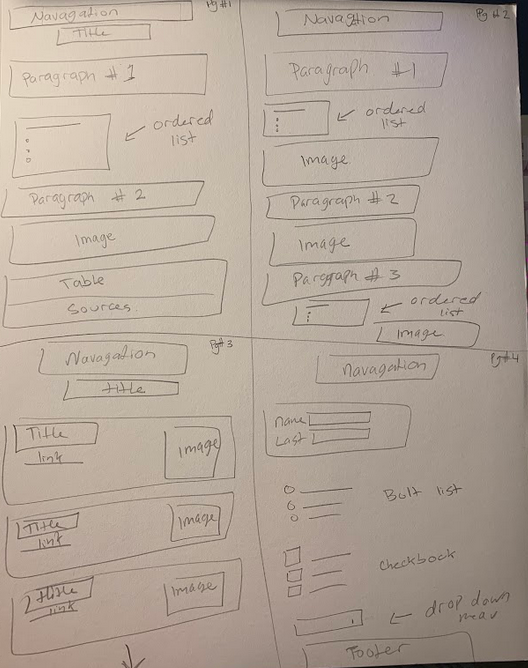 Pg #1
Navagation
Title
Paragraph # 1
ordered
list
Paragraph # 2
Image
Table
Sources.
Pg #2
Navagtion
Paragraph #1
ordered
list
Image
Paragraph # 2
Image
Paragraph # 3
ordered
list
Image
Pg# 3
Navagation
title
Title
link
Image
Title
link
Image
title
link
Image
Pg#4
navagation
Name
Last
Bult list
checkbock
drop down
Footer